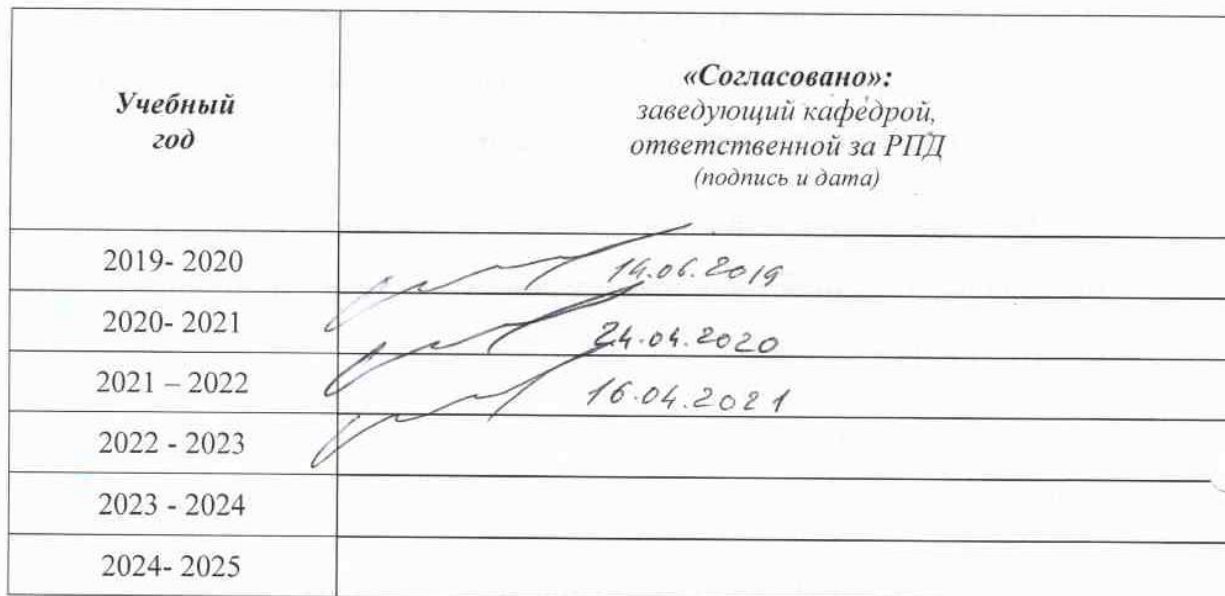 Учебный
год
«Согласовано»:
заведующий кафедрой,
ответственной за РПД
(подпись и дата)
2019- 2020 14.06.2019
2020- 2021 24.04.2020
2021 – 2022 16.04.2021
2022 - 2023
2023 - 2024
2024- 2025